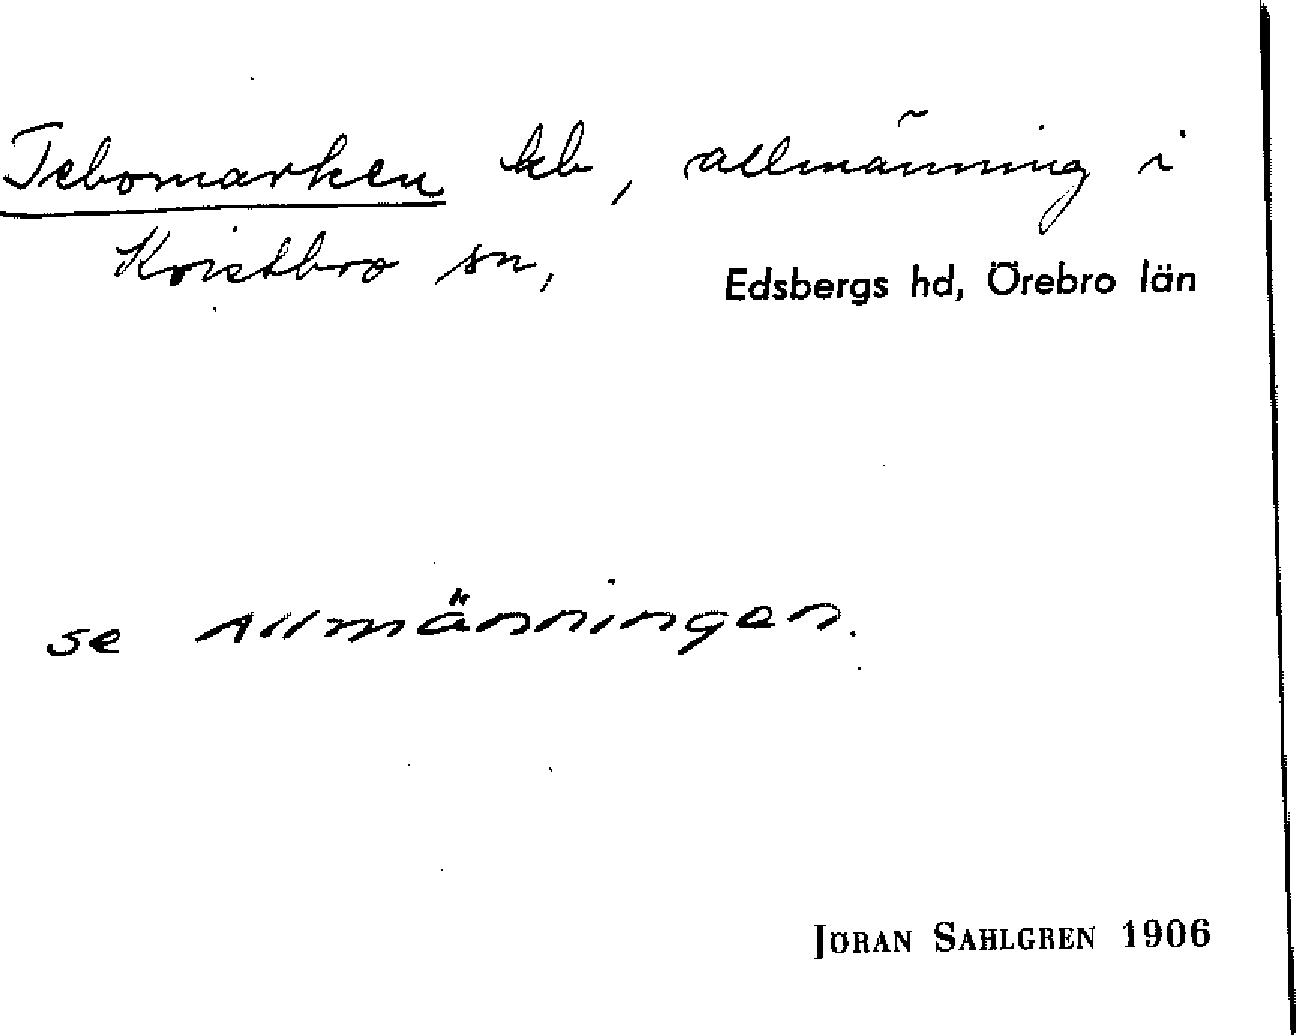 Tebomarken kb, allmänning i
Kvistbro sn, Edsbergs hd, Örebro län
se Allmänningen.
JÖRAN SAHLGREN 1906